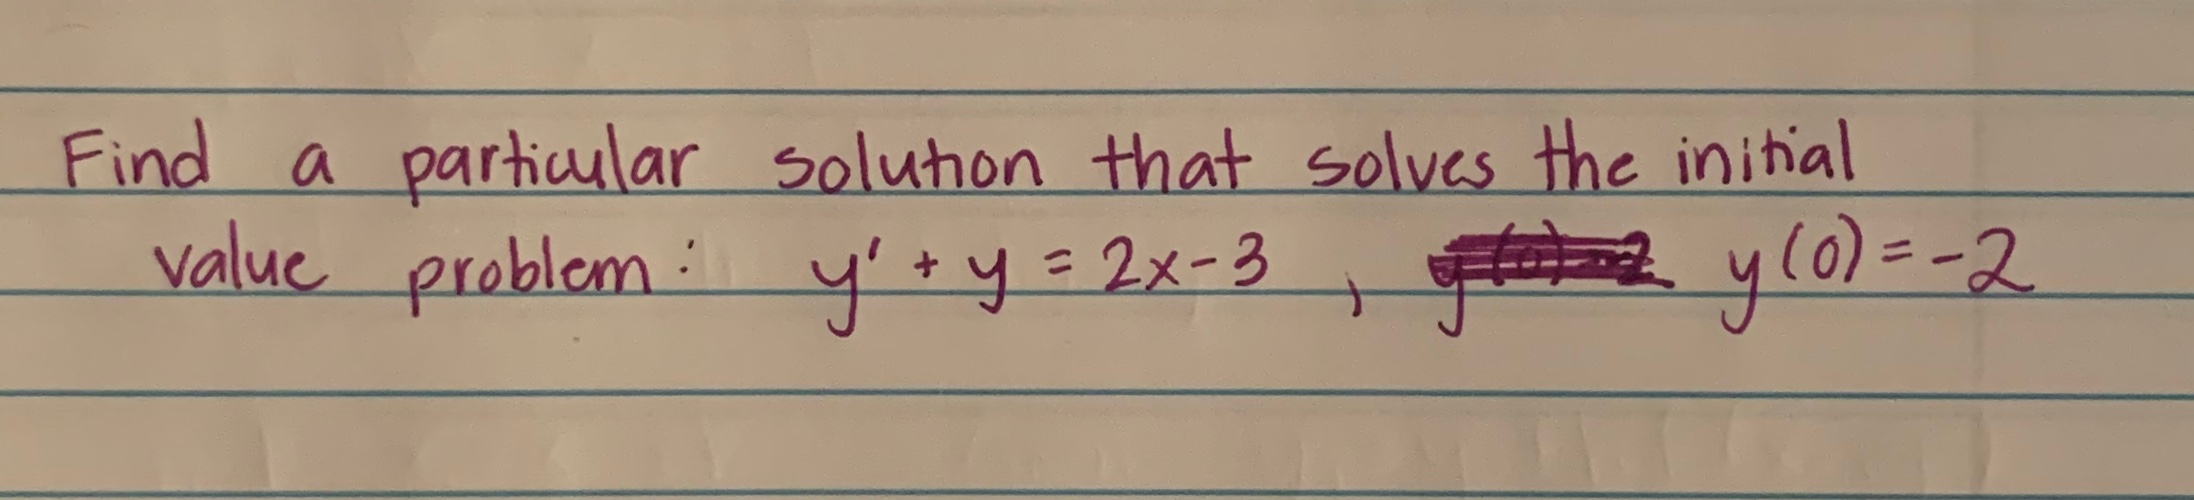 Find a particular solution that solves the initial
value problem: y' + y = 2x-3 , y(0) = -2